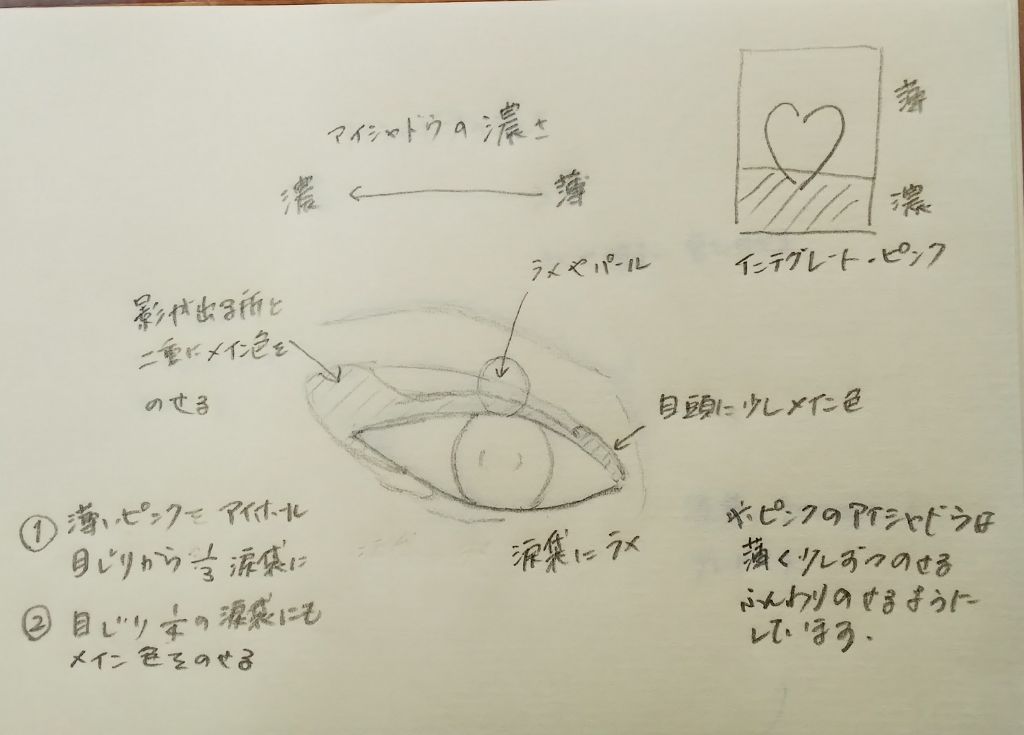 アイシャドウの濃さ
濃 ← 薄
薄
濃
インテグレート・ピンク
ラメやパール
影が出る所と
二重にメイン色を
のせる
目頭に少しメイン色
涙袋にラメ
① 薄いピンクを アイホール
目じりから 1/3 涙袋に
② 目じり 1/4の 涙袋にも
メイン色をのせる
※ピンクのアイシャドウは
薄く少しずつのせる
ふんわりのせるように
しています.